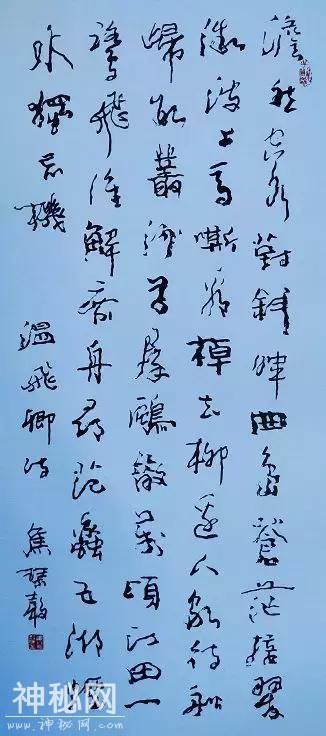 澹然空水對斜暉曲島蒼茫接翠
微波上馬嘶看棹去柳邊人歇待船
歸數叢沙草羣鷗散萬頃江田一
鷺飛誰解乘舟尋范蠡五湖煙
水獨忘機 溫飛卿詩 焦
神秘网
WWW.神秘网.COM